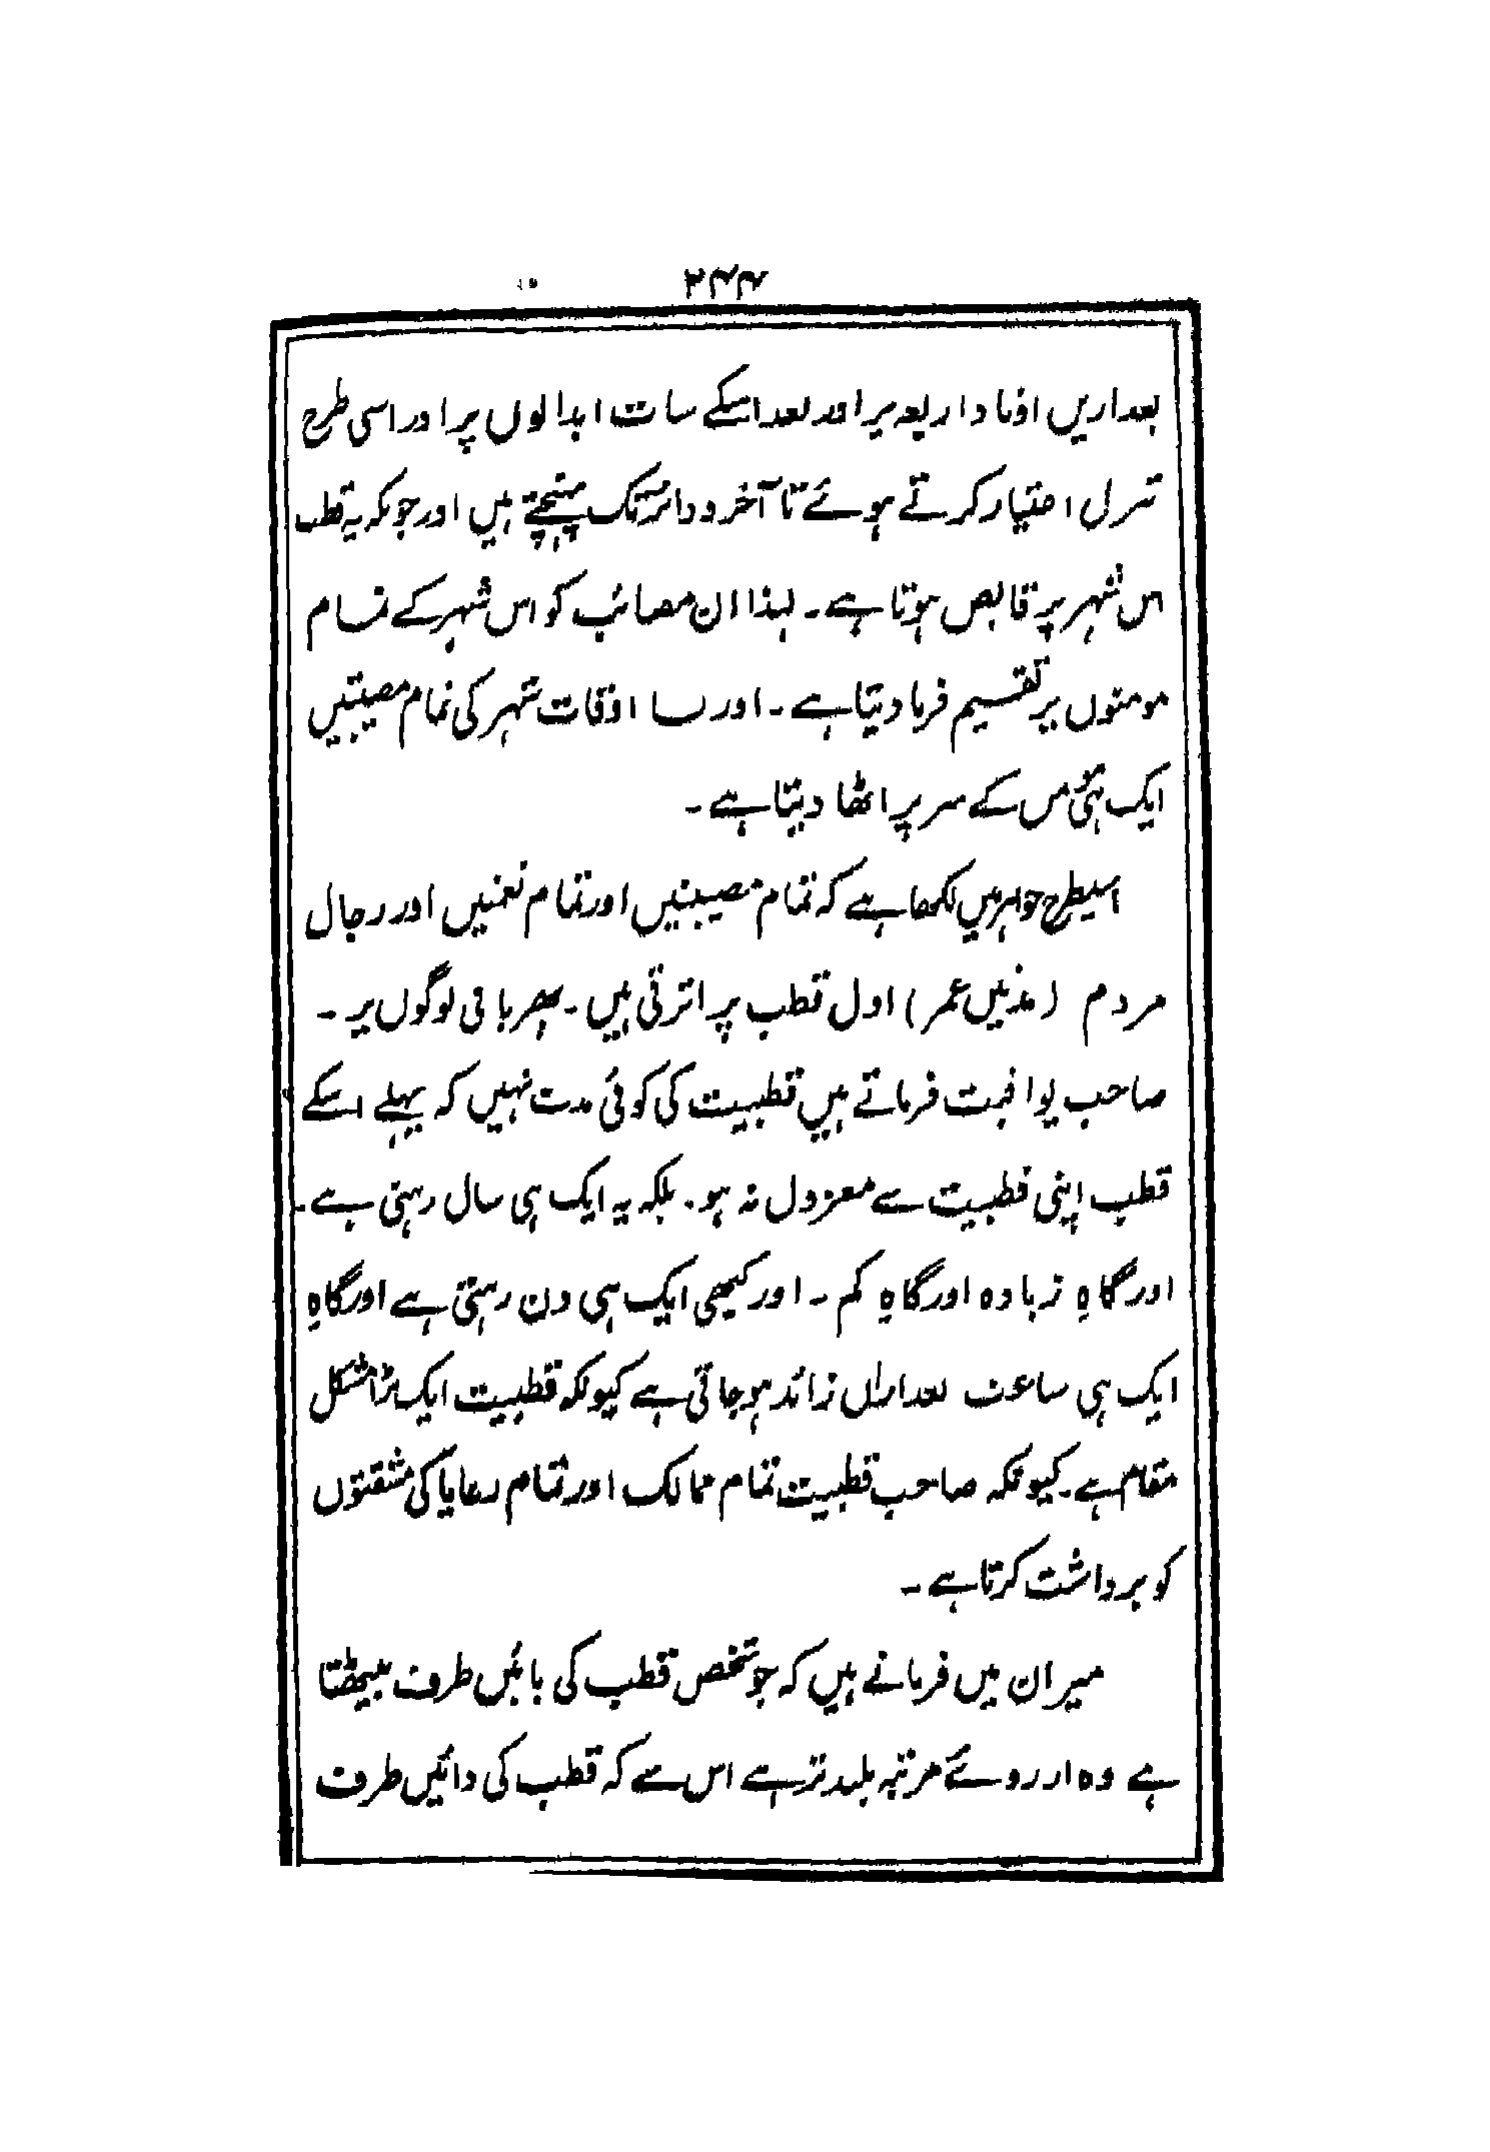 ۲۴۴
بعدازیں اوتاد اربعہ پر اور بعد اسکے سات ابدالوں پر اور اسی طرح
تنزل اختیار کرتے ہوئے تا آخر دوائر تک پہنچتے ہیں اور جونکہ یہ قطب
اس شہر پر قابض ہوتا ہے۔ لہذا ان مصائب کو اس شہر کے تمام
مومنوں پر تقسیم فرما دیتا ہے۔ اور بسا اوقات شہر کی تمام مصیبتیں
ایک ہی مومن کے سر پر اٹھا دیتا ہے۔
اسیطرح جواہر میں لکھا ہے کہ تمام مصیبتیں اور تمام نعمتیں اور رجال
مردم ( عمر ) اول قطب پر اترتی ہیں۔ پھر باقی لوگوں پر۔
صاحب یواقیت فرماتے ہیں قطبیت کی کوئی مدت نہیں کہ پہلے اسکے
قطب اپنی قطبیت سے معزول نہ ہو۔ بلکہ یہ ایک ہی سال رہتی ہے۔
اور گاہِ زیادہ اور گاہِ کم۔ اور کبھی ایک ہی دن رہتی ہے اور گاہِ
ایک ہی ساعت بعدازاں زائد ہو جاتی ہے کیونکہ قطبیت ایک بڑا مشکل
مقام ہے۔ کیونکہ صاحب قطبیت تمام ممالک اور تمام رعایا کی مشقتوں
کو برداشت کرتا ہے۔
میزان میں فرماتے ہیں کہ جو شخص قطب کی بائیں طرف بیٹھتا
ہے وہ از روئے مرتبہ بلند تر ہے اس سے کہ قطب کی دائیں طرف